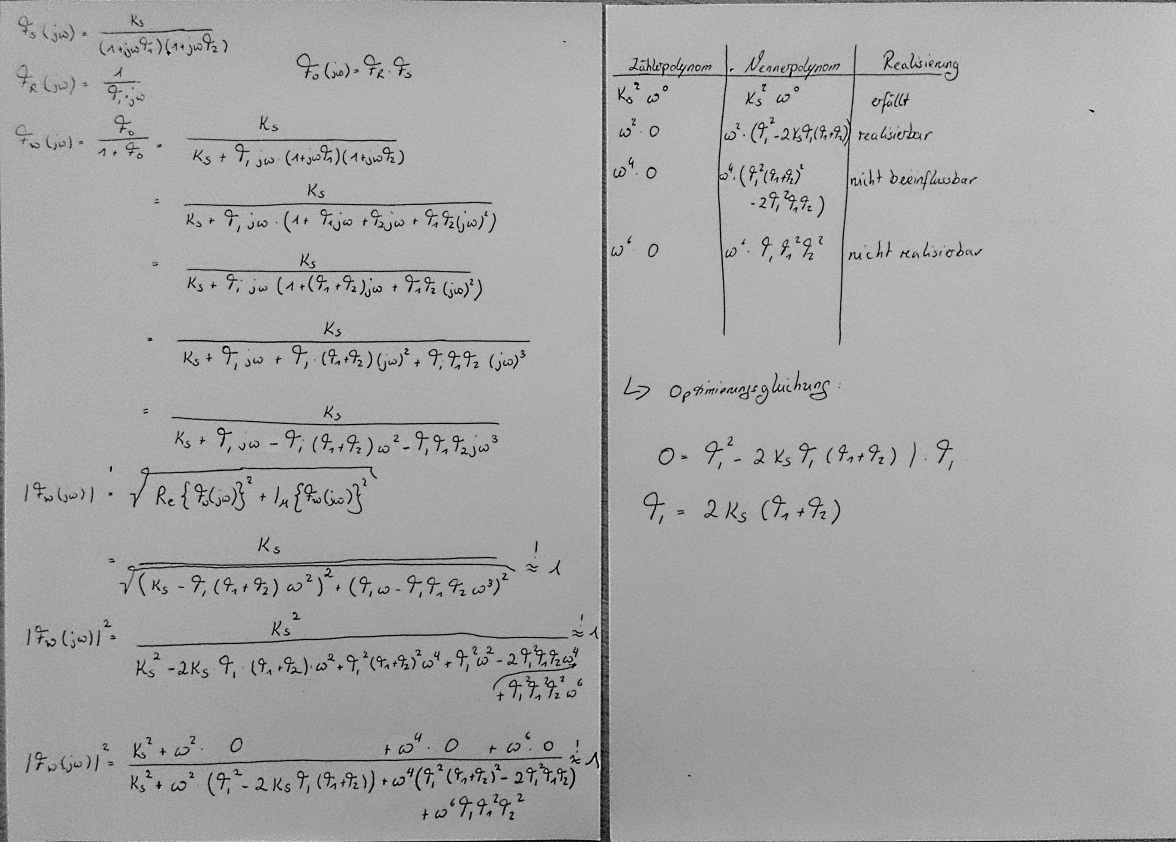 F_S(jω) = K_S / ((1+jωT_1)(1+jωT_2))
F_R(jω) = 1 / (T_i·jω)
F_o(jω) = F_R · F_S
F_w(jω) = F_o / (1+F_o) = K_S / (K_S + T_i jω · (1+jωT_1)(1+jωT_2))
= K_S / (K_S + T_i jω · (1 + T_1jω + T_2jω + T_1T_2(jω)²))
= K_S / (K_S + T_i jω (1+(T_1+T_2)jω + T_1T_2 (jω)²))
= K_S / (K_S + T_i jω + T_i · (T_1+T_2)(jω)² + T_i T_1T_2 (jω)³)
= K_S / (K_S + T_i jω − T_i (T_1+T_2)ω² − T_i T_1 T_2 jω³)
|F_w(jω)| = √(Re{F_w(jω)}² + Im{F_w(jω)}²)
= K_S / √((K_S − T_i (T_1+T_2) ω²)² + (T_i ω − T_i T_1 T_2 ω³)²) ! ≈ 1
|F_w(jω)|² = K_S² / (K_S² − 2K_S T_i · (T_1+T_2)·ω² + T_i²(T_1+T_2)²ω⁴ + T_i²ω² − 2T_i²T_1T_2ω⁴
+ T_i²T_1²T_2²ω⁶) ! ≈ 1
|F_w(jω)|² = (K_S² + ω² · 0 + ω⁴ · 0 + ω⁶ · 0) / (K_S² + ω² (T_i² − 2K_S T_i (T_1+T_2)) + ω⁴(T_i²(T_1+T_2)² − 2T_i²T_1T_2)
+ ω⁶T_iT_1²T_2²) ! ≈ 1
Zählerpolynom Nennerpolynom Realisierung
K_S² ω⁰ K_S² ω⁰ erfüllt
ω² · 0 ω² · (T_i² − 2K_ST_i(T_1+T_2)) realisierbar
ω⁴ · 0 ω⁴ · (T_i²(T_1+T_2)² nicht beeinflussbar
− 2T_i²T_1T_2)
ω⁶ · 0 ω⁶ · T_i T_1²T_2² nicht realisierbar
↳ Optimierungsgleichung:
0 = T_i² − 2 K_S T_i (T_1+T_2) | · T_i
T_i = 2 K_S (T_1+T_2)